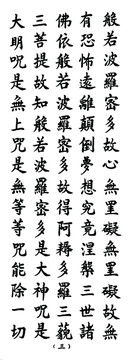 般若波羅密多故心無罣礙無罣礙故無
有恐怖遠離顛倒夢想究竟涅槃三世諸
佛依般若波羅密多故得阿耨多羅三藐
三菩提故知般若波羅密多是大神呪是
大明呪是無上呪是無等等呪能除一切
(三)